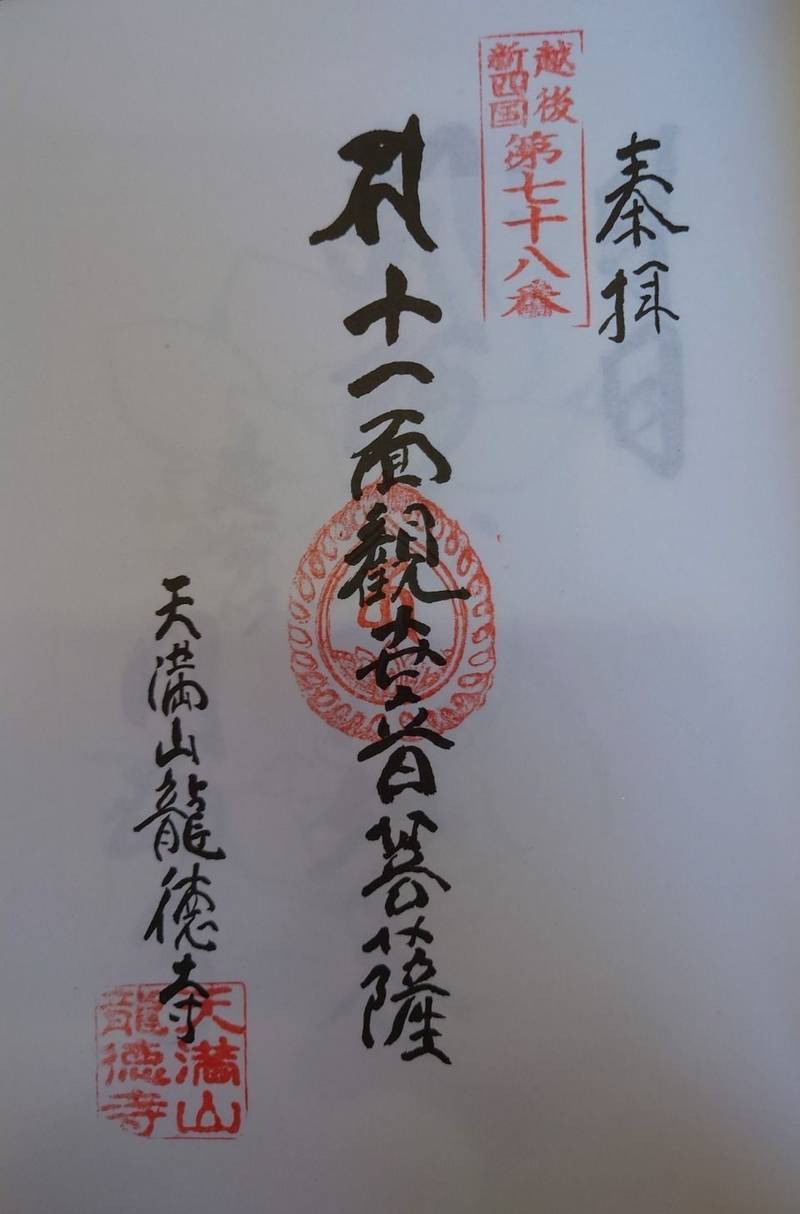 奉拝
越後
新四国
第七十八番
十一面観世音菩薩
天満山龍徳寺
天満山
龍徳寺